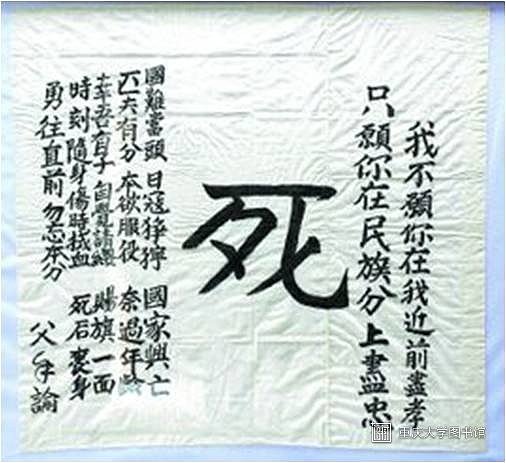 我不願你在我近前盡孝
只願你在民族分上盡忠
死
國難當頭 日寇猙獰 國家興亡
匹夫有分 本欲服役 奈過年齡
幸吾有子 自覺請纓 賜旗一面
時刻隨身 傷時拭血 死后裹身
勇往直前 勿忘本分
父手諭
重庆大学图书馆